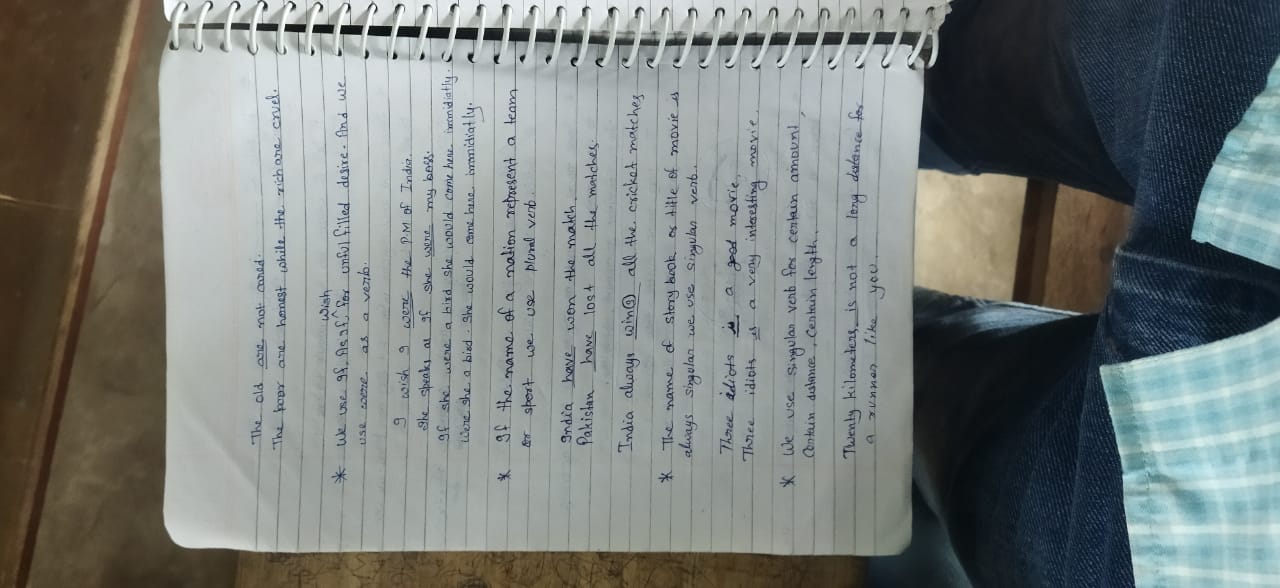 The old are not cared.
The poor are honest while the rich are cruel.
wish
* We use If, As if, for unful filled desire. And we
use were as a verb.
I wish I were the P.M of India.
She speaks as if she were my boss.
If she were a bird she would come here immidiatly.
Were she a bied. She would come here immidiatly.
* If the name of a nation represent a team
or sport we use plural verb.
India have won the match.
Pakistan have lost all the matches.
India always win(s) all the cricket matches
* The name of story book or title of movie is
always singular we use singular verb.
Three idiots is a good movie.
Three idiots is a very interesting movie.
* We use singular verb for certain amount,
Certain distance, Certain length.
Twenty kilometers is not a long distance for
a runner like you.